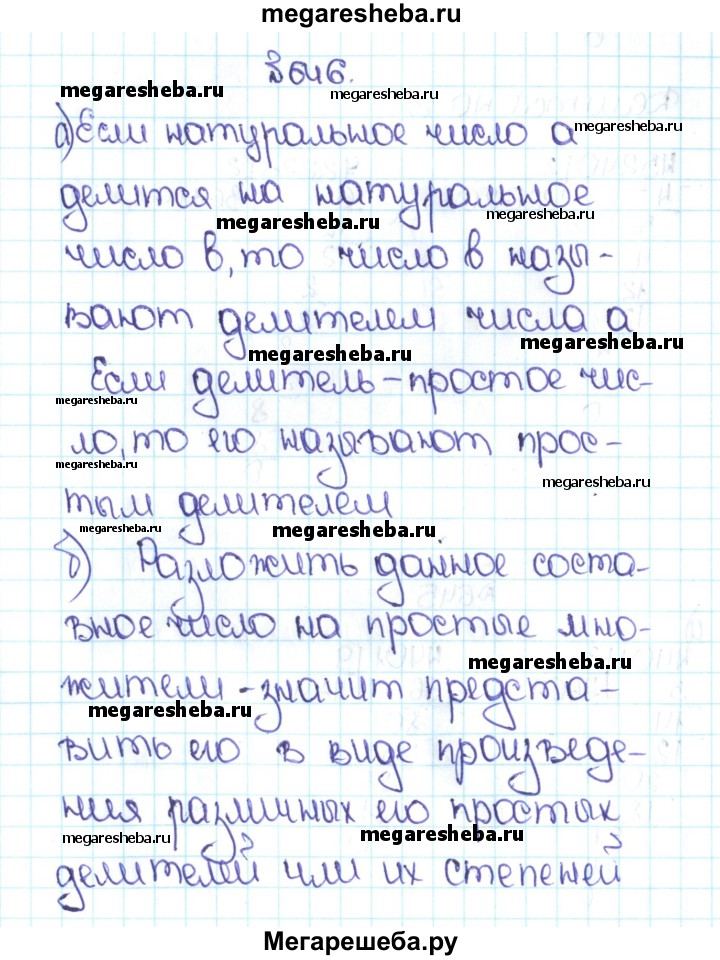 megaresheba.ru
№646.
megaresheba.ru
megaresheba.ru
а) Если натуральное число а
megaresheba.ru
делится на натуральное
megaresheba.ru
megaresheba.ru
число в, то число в назы-
вают делителем числа а
megaresheba.ru
megaresheba.ru
Если делитель - простое чис-
megaresheba.ru
ло, то его называют прос-
megaresheba.ru
megaresheba.ru
тым делителем
megaresheba.ru
megaresheba.ru
б) Разложить данное соста-
вное число на простые мно-
megaresheba.ru
жители - значит предста-
megaresheba.ru
вить его в виде произведе-
ния различных его простых
megaresheba.ru
megaresheba.ru
делителей или их степеней
Мегарешеба.ру